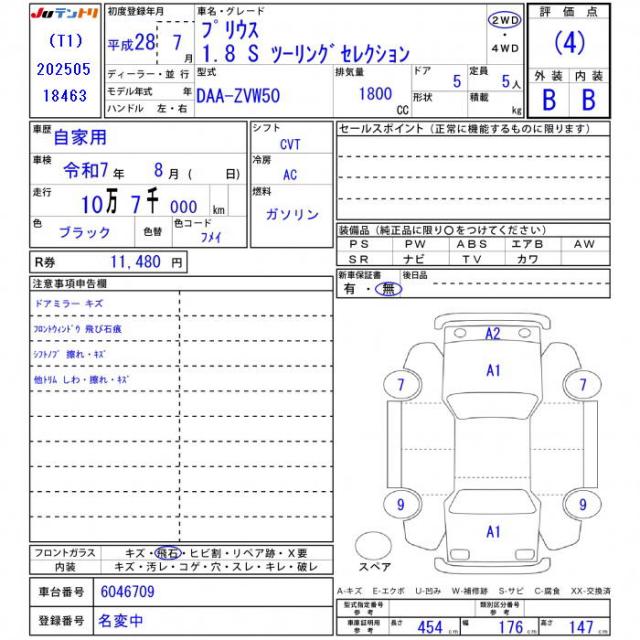 JUテントリ
(T1)
202505
18463
初度登録年月
平成28年 7月
ディーラー・並 行
モデル年式 年
ハンドル 左・右
車名・グレード
プリウス
1.8 S ツーリングセレクション
2WD
・
4WD
型式
DAA-ZVW50
排気量
1800
CC
ドア
5
形状
定員
5人
積載
kg
評 価 点
(4)
外 装 内 装
B B
車歴
自家用
車検
令和7年 8月 ( 日)
走行
10万 7千 000 km
色
ブラック
色替
色コード
フメイ
シフト
CVT
冷房
AC
燃料
ガソリン
R券 11,480 円
セールスポイント (正常に機能するものに限ります)
装備品 (純正品に限り〇をつけてください)
PS PW ABS エアB AW
SR ナビ TV カワ
新車保証書
有・無
後日品
注意事項申告欄
ドアミラー キズ
フロントウィンドウ 飛び石痕
シフトノブ 擦れ・キズ
他トリム しわ・擦れ・キズ
A2
A1
7 7
9 9
A1
スペア
フロントガラス キズ・飛石・ヒビ割・リペア跡・X要
内装 キズ・汚レ・コゲ・穴・スレ・キレ・破レ
車台番号 6046709
登録番号 名変中
A-キズ E-エクボ U-凹み W-補修跡 S-サビ C-腐食 XX-交換済
型式指定番号
参考
類別区分番号
参考
車庫証明用
参考
長さ 454 cm 幅 176 cm 高さ 147 cm